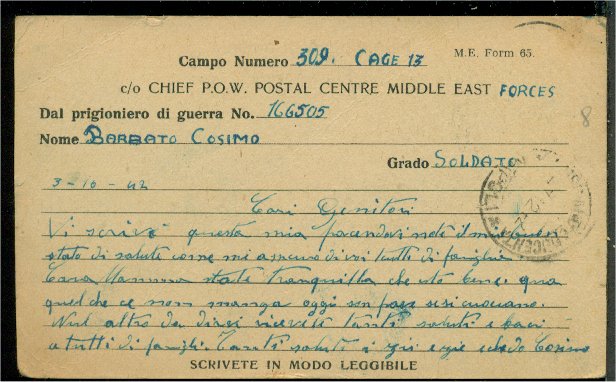 Campo Numero 309. CAGE 13
M.E. Form 65.
c/o CHIEF P.O.W. POSTAL CENTRE MIDDLE EAST FORCES
Dal prigioniero di guerra No. 166505
8
Nome BARBATO COSIMO
Grado SOLDATO
3-10-42
Cari Genitori
Vi scrivo questa mia facendovi noto il mio
stato di salute come mi assicuro di voi tutti di famiglia
Cara Mamma state tranquilla che sto bene qua
quel che ce non manga oggi son
Nul altro da dirvi ricevete tanti saluti e baci
a tutti di famiglia Tanti saluti i zii e zie Cosimo
SCRIVETE IN MODO LEGGIBILE